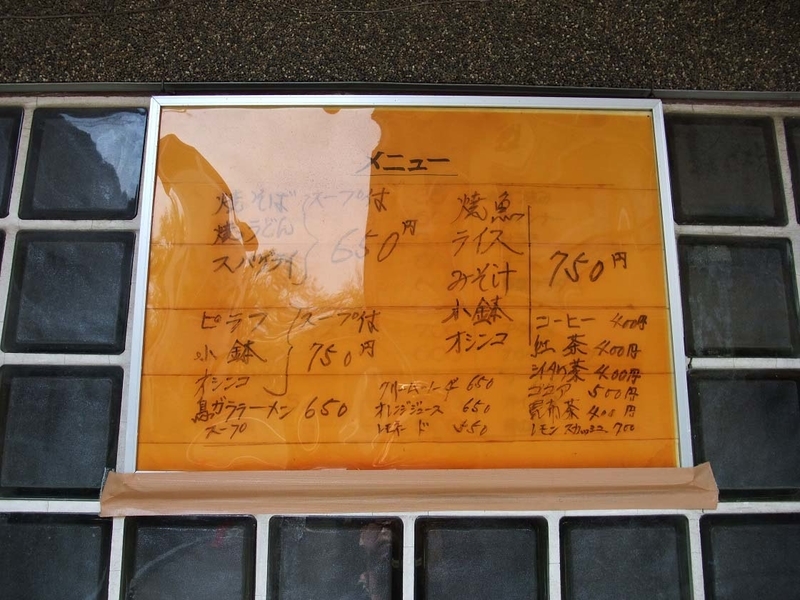 メニュー
焼そば スープ付
焼うどん
スパゲティ 650円
ピラフ スープ付
小鉢 750円
オシンコ
鳥ガララーメン 650
スープ
焼魚
ライス
みそ汁 750円
小鉢
オシンコ
クリームソーダ 650
オレンジジュース 650
レモネード
コーヒー 400円
紅茶 400円
シイタケ茶 400円
ココア 500円
昆布茶 400円
レモンスカッシュ 700